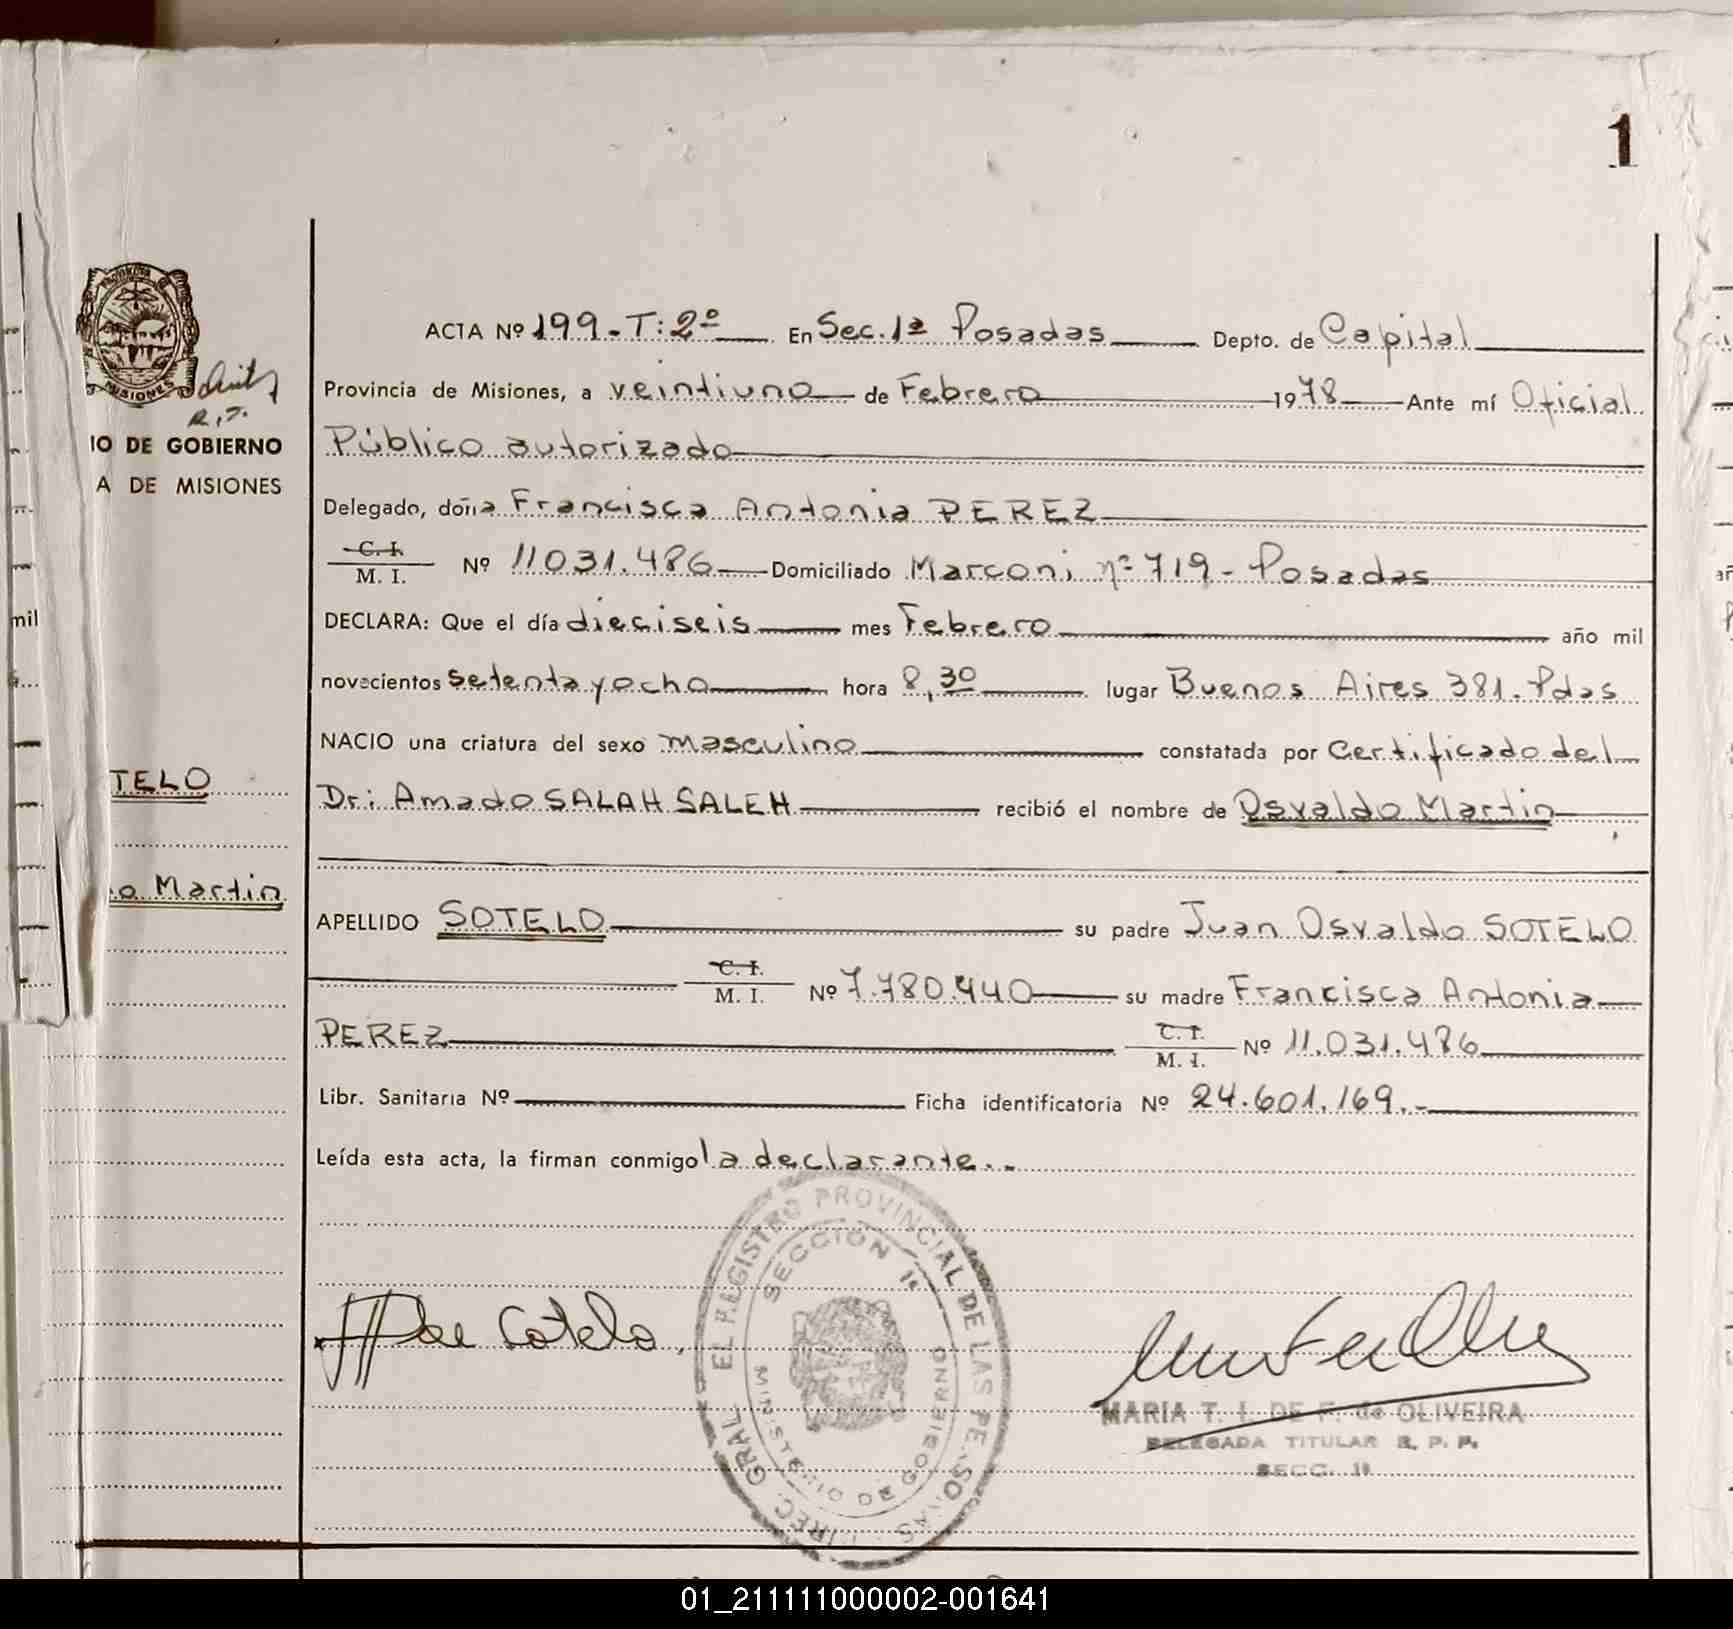 1
ACTA Nº 199-T:2º En Sec. 1ª Posadas Depto. de Capital
Provincia de Misiones, a veintiuno de Febrero 1978 Ante mí Oficial
Público autorizado
Delegado, doña Francisca Antonia PEREZ
C. I.
M. I. Nº 11031.486 Domiciliado Marconi nº 719 - Posadas
DECLARA: Que el día dieciseis mes Febrero año mil
novecientos setenta y ocho hora 8,30 lugar Buenos Aires 381. Pdas
NACIO una criatura del sexo masculino constatada por Certificado del
Dr: Amado SALAH SALEH recibió el nombre de Osvaldo Martin
APELLIDO SOTELO su padre Juan Osvaldo SOTELO
C. I.
M. I. Nº 7.780.440 su madre Francisca Antonia
PEREZ C. I.
M. I. Nº 11.031.486
Libr. Sanitaria Nº Ficha identificatoria Nº 24.601.169.-
Leída esta acta, la firman conmigo la declarante.-
de Sotelo
MARIA T. I. DE F. de OLIVEIRA
DELEGADA TITULAR R. P. P.
SECC. 1ª
DIREC. GRAL. EL REGISTRO PROVINCIAL DE LAS PERSONAS
SECCION 1ª
MINISTERIO DE GOBIERNO
MISIONES
R.P.
IO DE GOBIERNO
A DE MISIONES
mil
TELO
o Martin
01_211111000002-001641